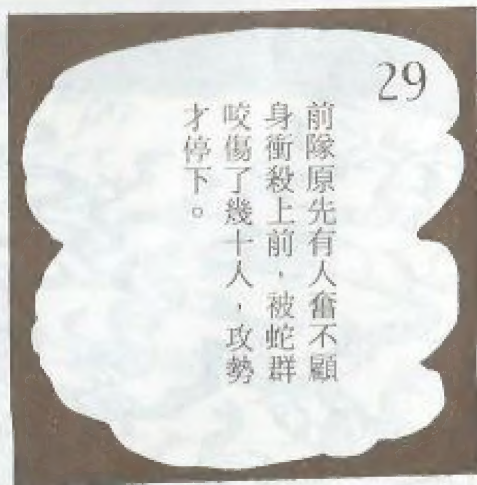 29
前隊原先有人奮不顧
身衝殺上前，被蛇群
咬傷了幾十人，攻勢
才停下。